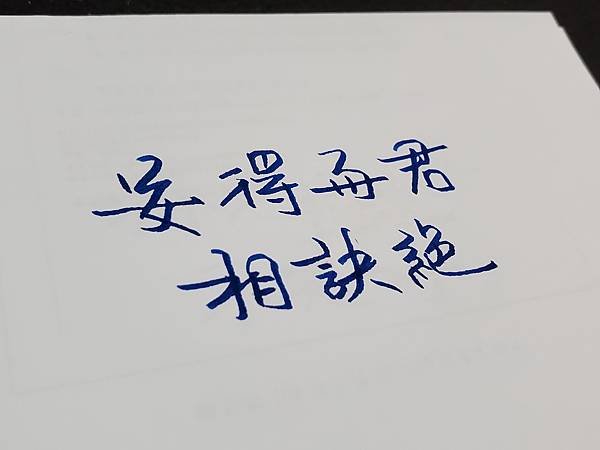 安得再君
相訣絕